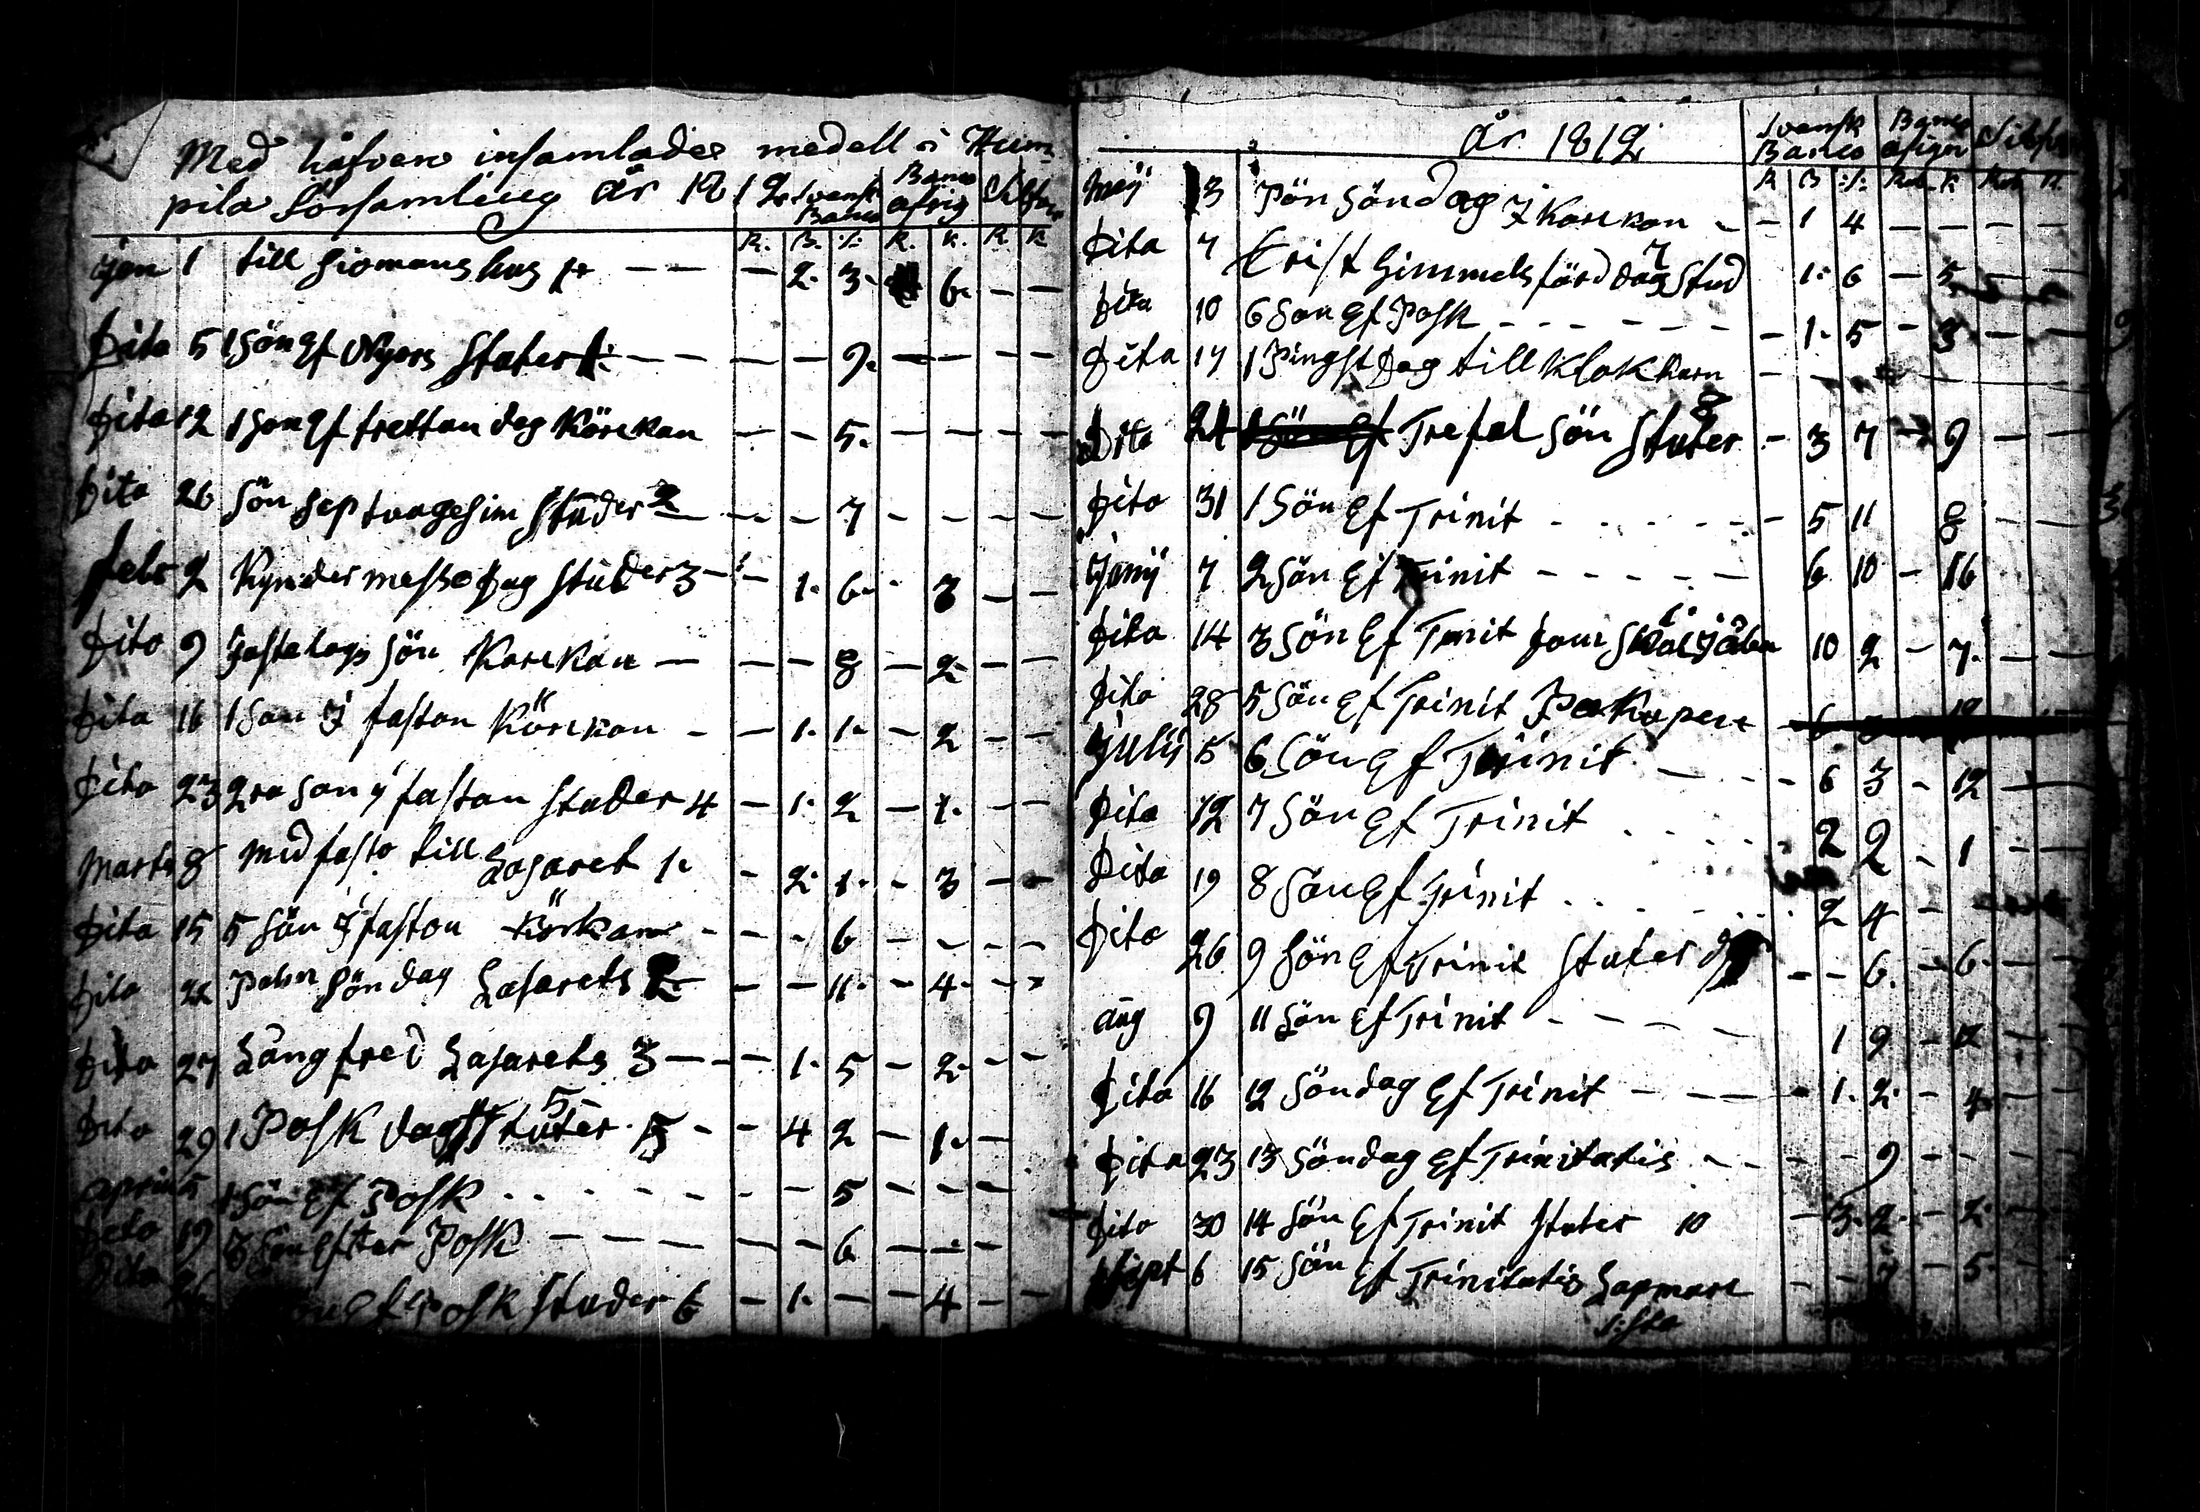 Med håfven insamlades medell i Hum-
pila Församling År 1812 Svensk Banco Banco asig Silfver
R. B. :/: R. K. R. K
Jan 1 till Siomans hus 1 — — — 2. 3. 6. — —
Dito 5 1 Sön Ef Nyors Stuter 1: — — — — 9. — — — —
Dito 12 1 Son Ef trettan dag Körckan — — 5. — — — —
Dito 26 Sön Septuagesim Studer 2 — — — 7 — — — —
Febr 2 Kynder messo Dag Studer 3 — — 1. 6. - 3 — —
Dito 9 Fastelags Sön Korckan — — — 8 — 2 — —
Dito 16 1 San I fastan Körckan — — 1. 1. — 2 — —
Dito 23 2ra Son y fastan Studer 4 — 1. 2 — 1. — —
Marts 8 Mid fasto till Lasaret 1. - 2. 1. - 3 — —
Dito 15 5 Sön I faston Körkan - - - 6 - - - -
Dito 22 Palm Söndag Lasarets 2 — — — 11. - 4. - -
Dito 27 Långfred Lasarets 3 — — — 1. 5 — 2. — —
Dito 29 1 Posk dag Stuter 5 - - 4 2 — 1. —
April 5 1 Sön Ef Posk - - - - - - 5 - - - -
Dito 19 3 Son Efter Posk — — — — — 6 — — —
Dito 26 Ef Posk Studer 6 — 1. — — 4 — —
År 1812 Svensk Banco Banco asign Silfver
R B :/: Rub. K Rub. K.
Maij 3 Bön Söndag I Korckan - - 1 4 - - - -
Dito 7 Crist Himmelsfärd dag Stud 7 1. 6 - 5
Dito 10 6 Son Ef Posk - - - - - - 1. 5 - 3
Dito 17 1 Pingst Dag till Klokkarn - - -
Dito 24 Trefal Sön Stuter 8 - 3 7 - 9 - -
Dito 31 1 Sön Ef Trinit - - - - - - 5 11 8 - -
Junij 7 2 Sön Ef Trinit - - - - - 6 10 - 16
Dito 14 3 Sön Ef Trinit 10 2 - 7. - -
Dito 28 5 Sön Ef Trinit
Julij 5 6 Sön Ef Trinit — - - 6 3 - 12 -
Dito 12 7 Sön Ef Trinit - - - - 2 2 - 1 -
Dito 19 8 Sön Ef Trinit - - - - 2 4 -
Dito 26 9 Sön Ef Trinit Stuter - - 6. - 6. - -
Aug 9 11 Sön Ef Trinit - - - - 1 9 - 12 - -
Dito 16 12 Söndag Ef Trinit - - - - 1. 2. - 4 - -
Dito 23 13 Söndag Ef Trinitatis - - - - 9 - - - -
Dito 30 14 Sön Ef Trinit Stuter 10 - 3. 2. - 2. - -
Sept 6 15 Sön Ef Trinitatis Lapmarc - - - 5. - -